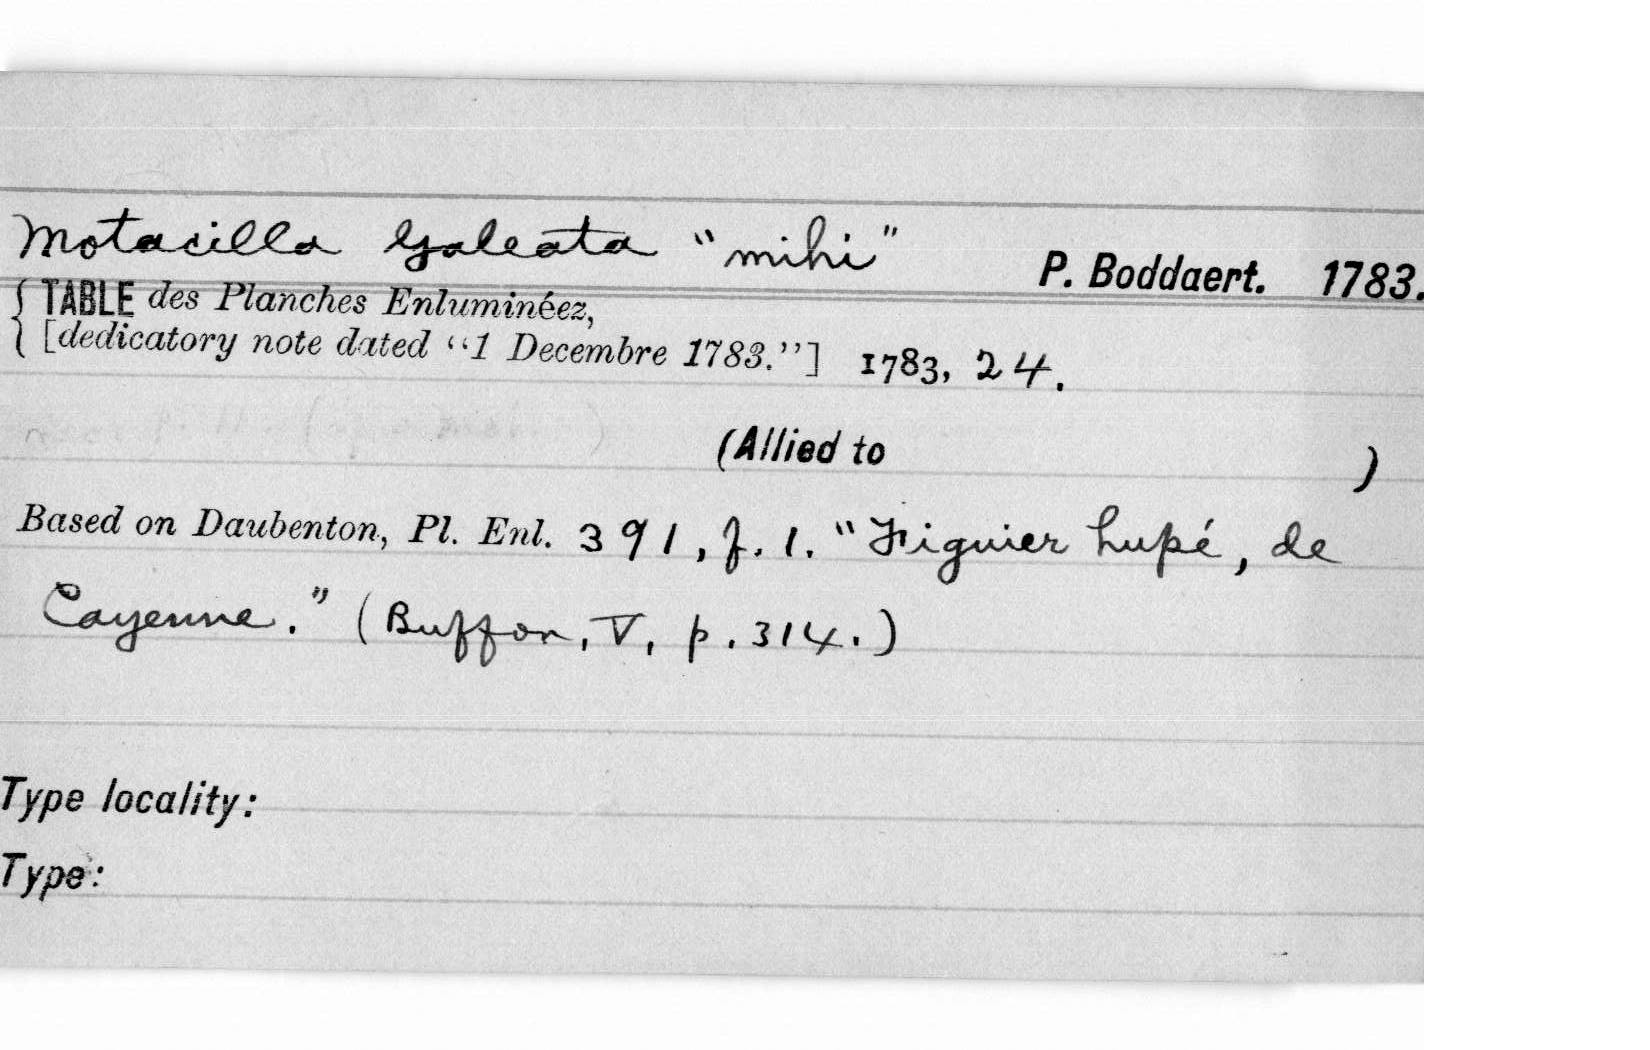 Motacilla Galeata "mihi"
P. Boddaert. 1783.
{ TABLE des Planches Enluminéez,
{ [dedicatory note dated "1 Decembre 1783."] 1783, 24.
(Allied to )
Based on Daubenton, Pl. Enl. 391, f. 1. "Figuier hupé, de
Cayenne." (Buffon, V, p. 314.)
Type locality:
Type: